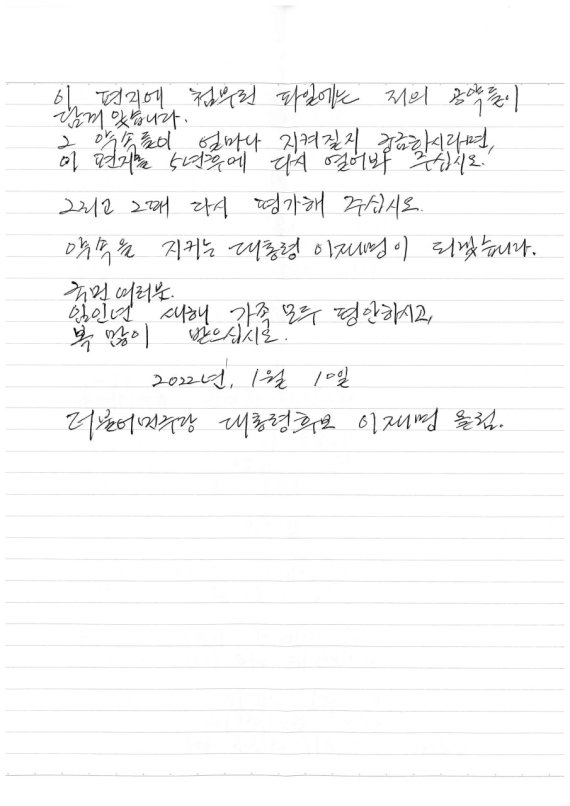 이 편지에 첨부된 파일에는 저의 공약들이
담겨 있습니다.
그 약속들이 얼마나 지켜질지 궁금하시라면,
이 편지를 5년후에 다시 열어봐 주십시오.
그리고 그때 다시 평가해 주십시오.
약속을 지키는 대통령 이재명이 되겠습니다.
국민 여러분.
임인년 새해 가족 모두 평안하시고,
복 많이 받으십시오.
2022년, 1월 10일
더불어민주당 대통령후보 이재명 올림.